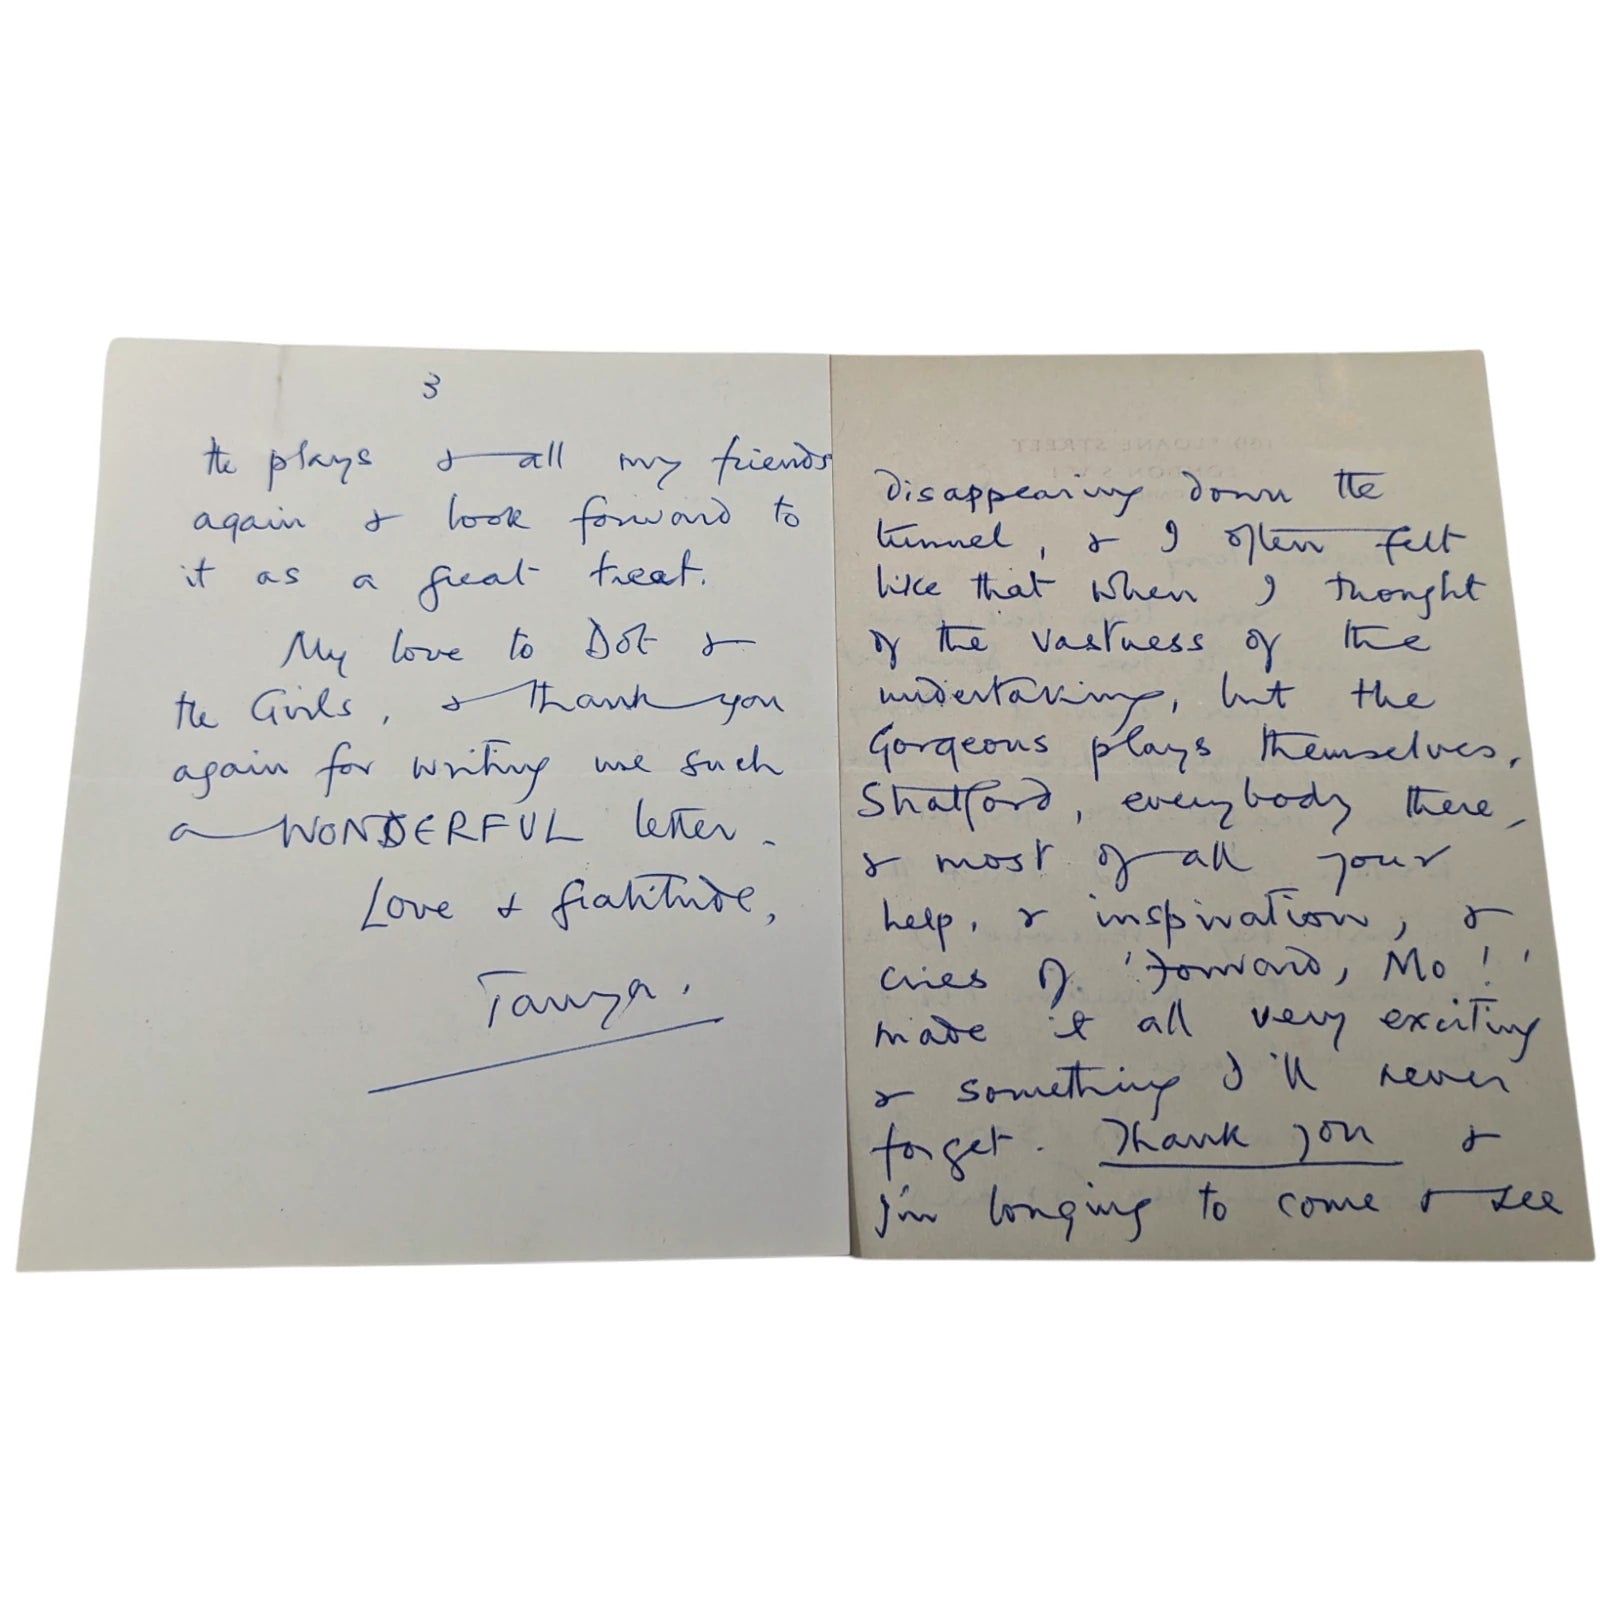 3
the plays & all my friends
again & look forward to
it as a great treat.
My love to Dot &
the Girls, & thank you
again for writing me such
a WONDERFUL letter.
Love & Gratitude,
Tanya.
169 SLOANE STREET
LONDON S.W.1
disappearing down the
tunnel, & I often felt
like that when I thought
of the vastness of the
undertaking, but the
Gorgeous plays themselves,
Stratford, everybody there,
& most of all your
help, & inspiration, &
cries of 'Forward, Mo!'
made it all very exciting
& something I'll never
forget. Thank you &
I'm longing to come & see